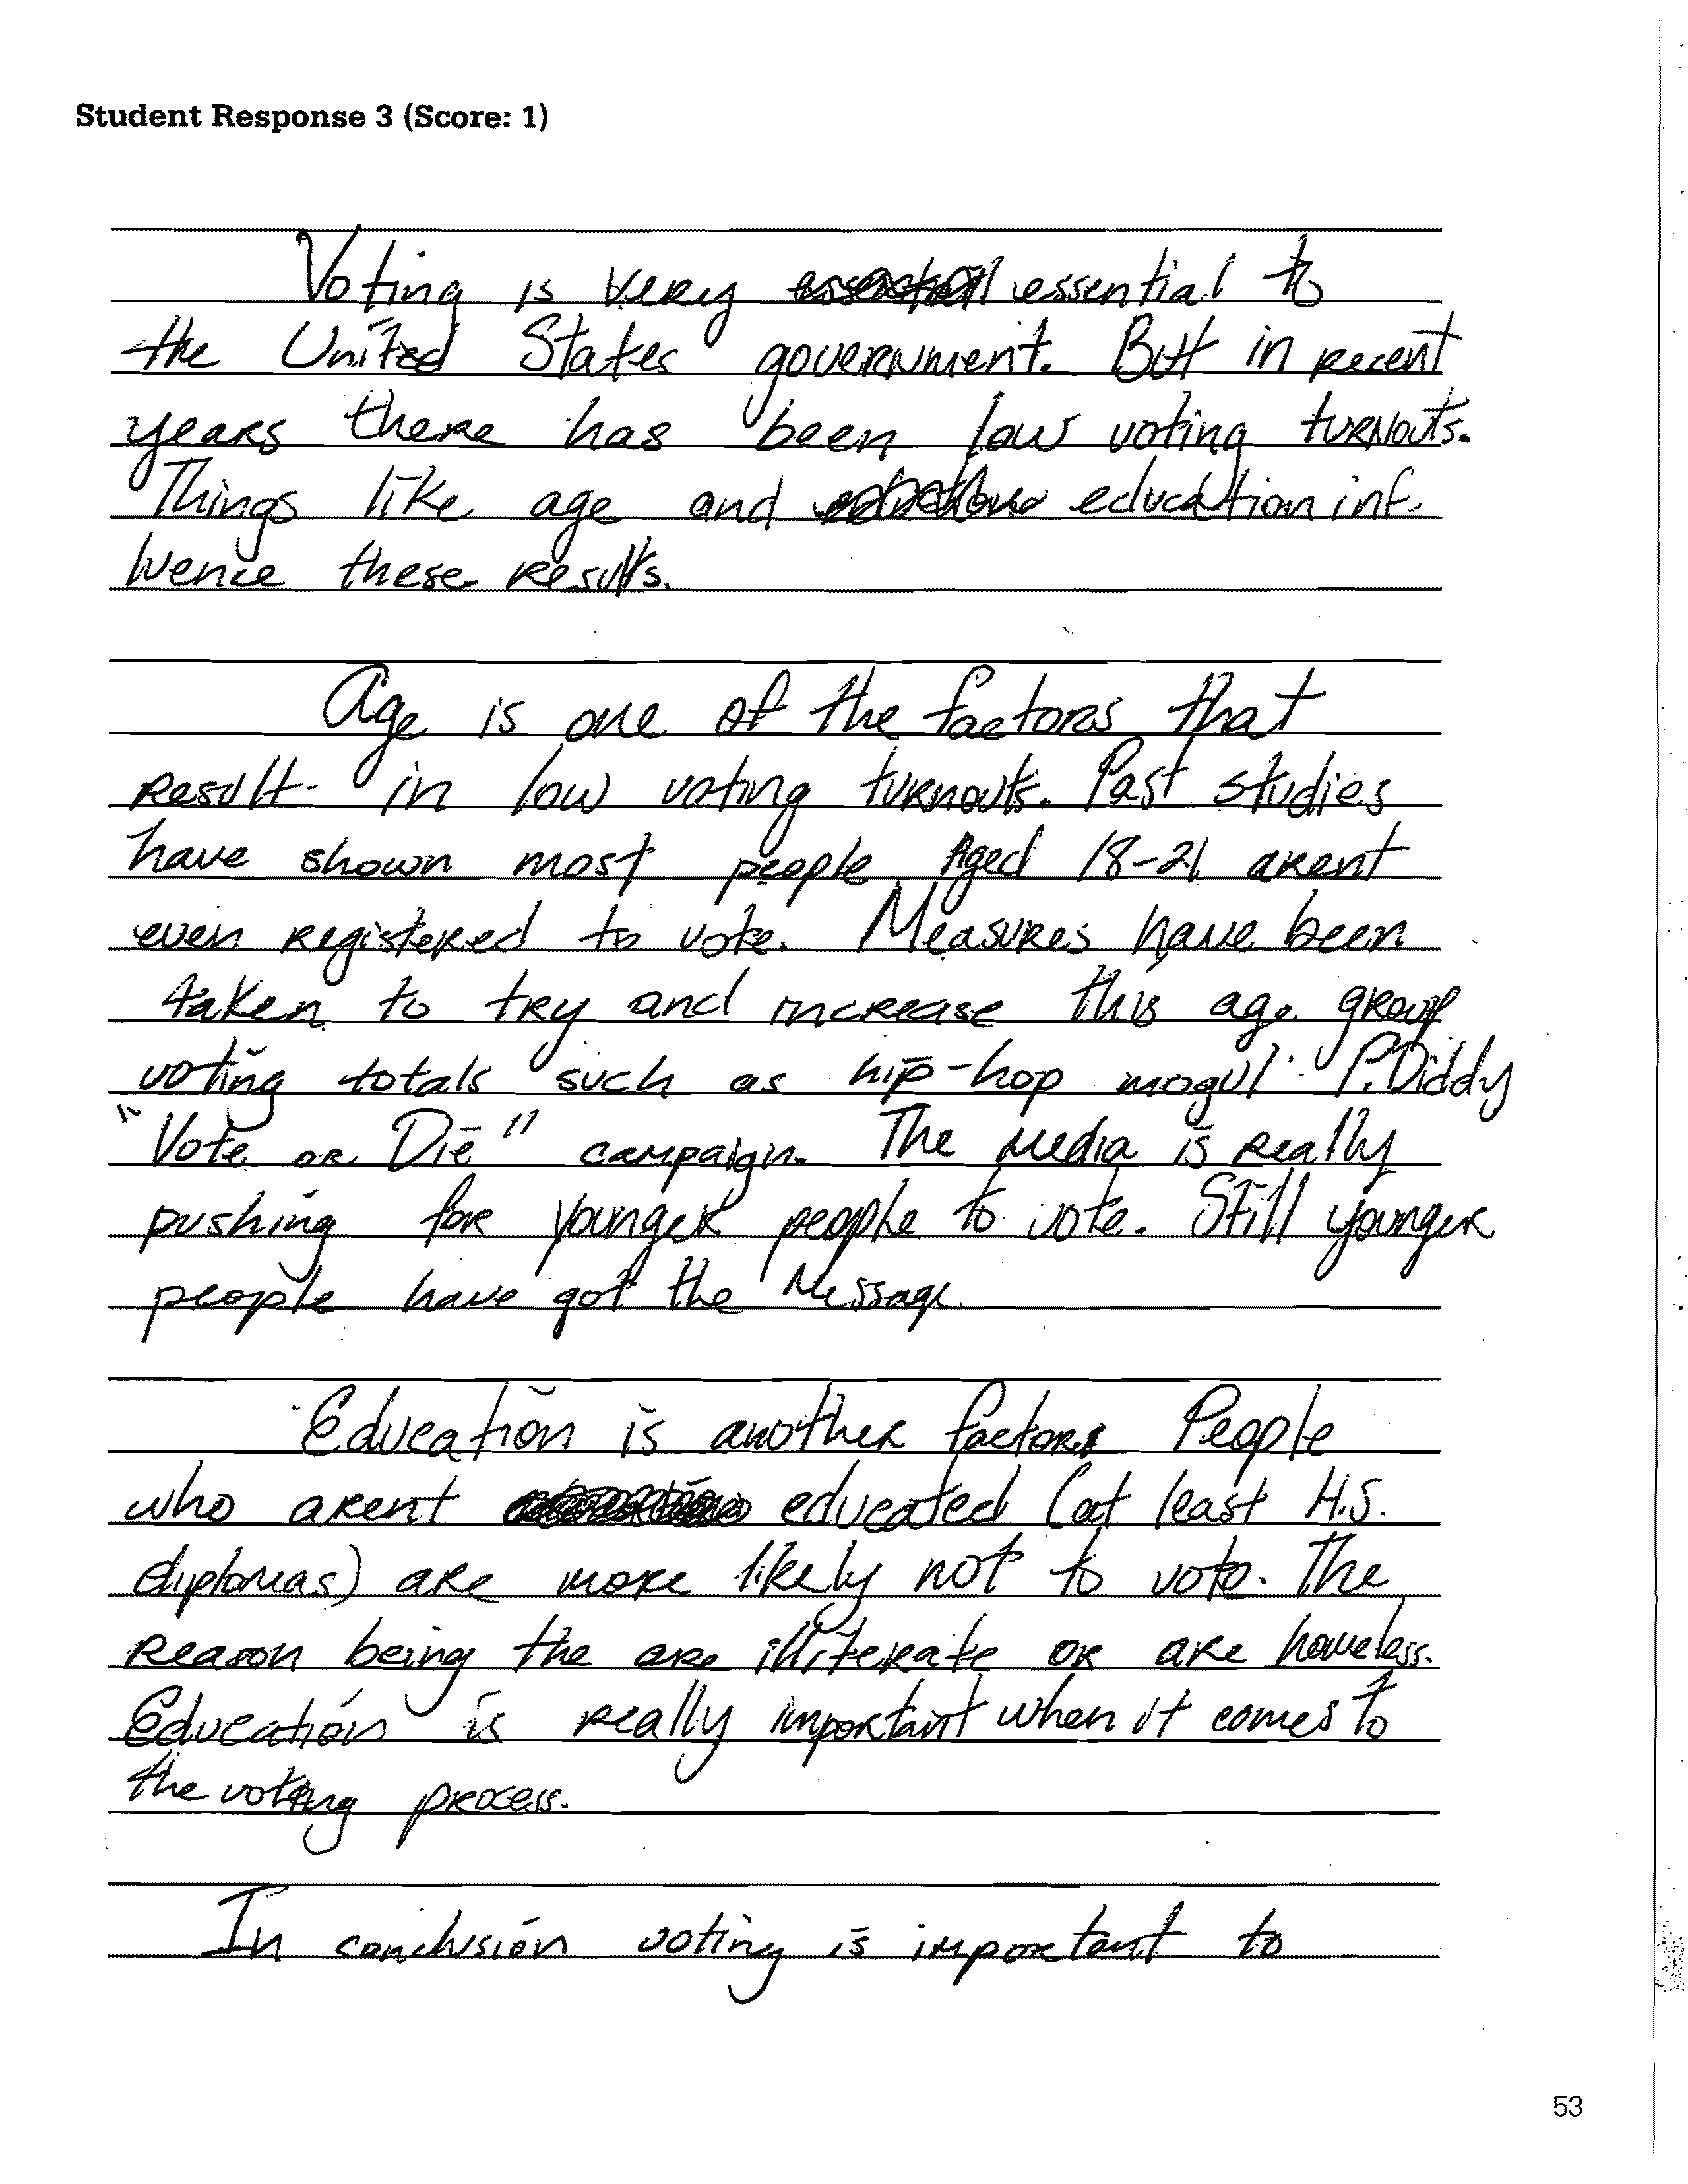 Student Response 3 (Score: 1)
Voting is very essential to
the United States government. But in recent
years there has been low voting turnouts.
Things like age and education inf-
luence these results.
Age is one of the factors that
result in low voting turnouts. Past studies
have shown most people Aged 18-21 arent
even registered to vote. Measures have been
taken to try and increase this age group
voting totals such as hip-hop mogul P. Diddy
"Vote or Die" campaign. The media is really
pushing for younger people to vote. Still younger
people have got the message.
Education is another factor. People
who arent educated (at least H.S.
diplomas) are more likely not to vote. The
reason being the are illiterate or are homeless.
Education is really important when it comes to
the voting process.
In conclusion voting is important to
53